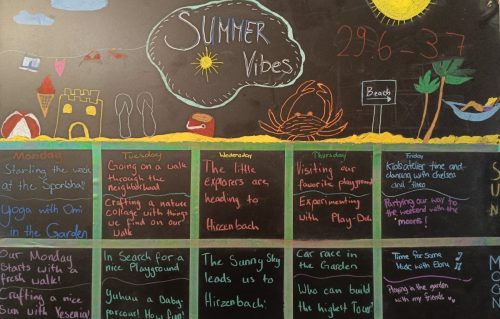 SUMMER
Vibes
29.6 - 3.7
Beach
Monday
Starting the week
at the Sponbhas
Yoga with Omi
in the Garden
Tuesday
Going on a walk
through the
neighborhood
Crafting a nature
collage with things
we find on our
walk
Wednesday
The little
explorers are
heading to
Hirzenbach
Thursday
Visiting our
favorite playground
Experimenting
with Play-Doh
Friday
Kids atelier time and
dancing with chelsea
and thea
Partying our way to
the weekend with the
moors!
Our Monday
Starts with a
fresh walk!
Crafting a nice
Sun with Yesenia!
In Search for a
nice Playground
Yuhuu a Baby
parcour! How fun!
The Sunny Sky
leads us to
Hirzenbach!
Car race in
the Garden
Who can build
the highest Tower?
Time for Some
Music with Elena
Playing in the garden
with my friends